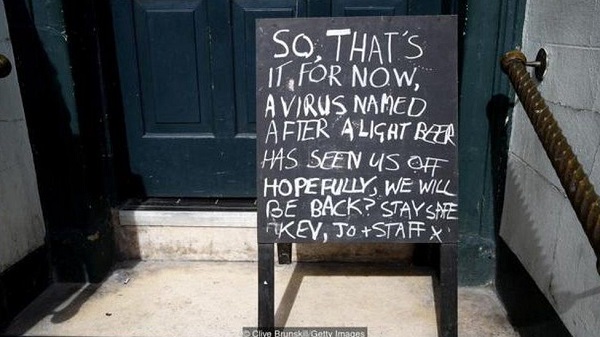 SO, THAT'S
IT, FOR NOW,
A VIRUS NAMED
AFTER A LIGHT BEER
HAS SEEN US OFF
HOPEFULLY, WE WILL
BE BACK? STAY SAFE
KEV, JO + STAFF X
© Clive Brunskill/Getty Images